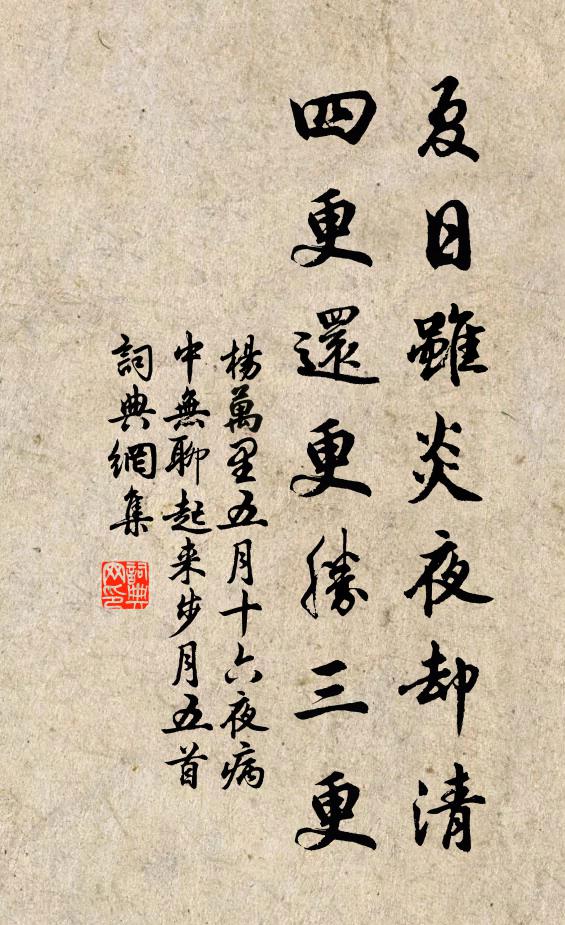 夏日雖炎夜却清
四更還更勝三更
楊萬里五月十六夜病
中無聊起来步月五首
詞典網集
詞典网印